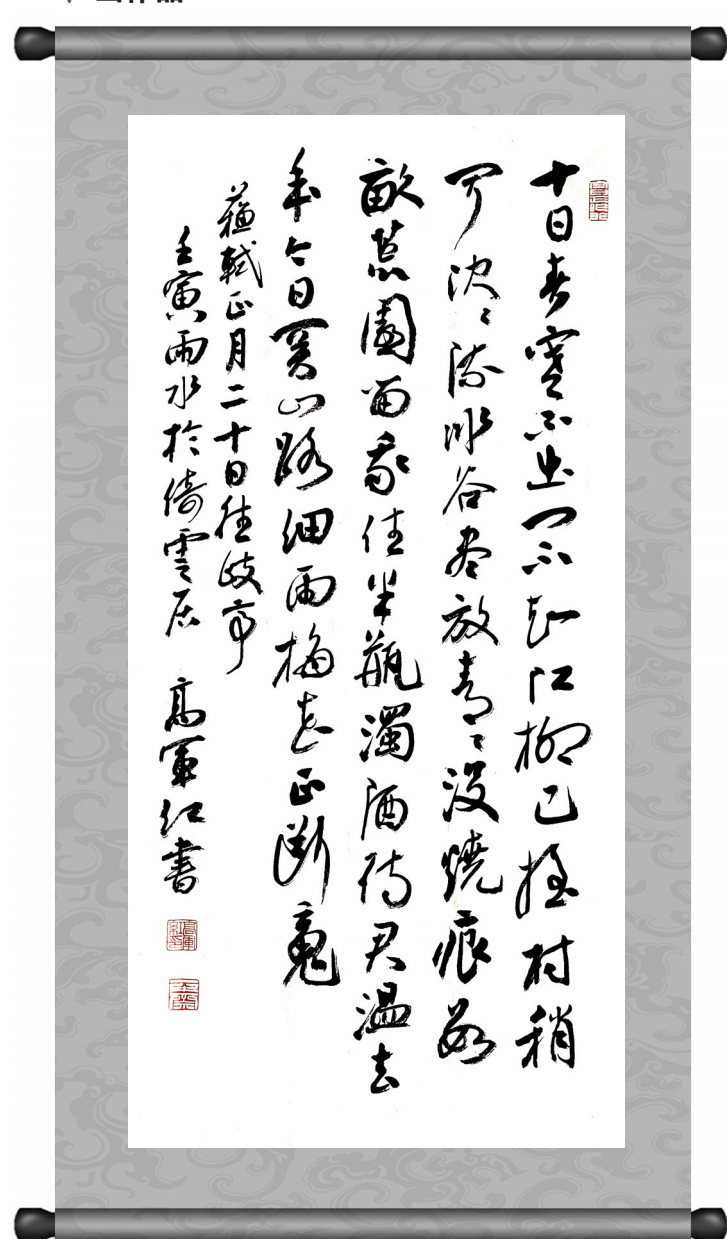 十日春寒不出门不知江柳已摇村稍
闻决〻流冰谷尽放青〻没燒痕數
畝荒園留我住半瓶濁酒待君温去
年今日関山路细雨梅花正断魂
蘇軾正月二十日往歧亭
壬寅雨水於倚雲居 高軍红書